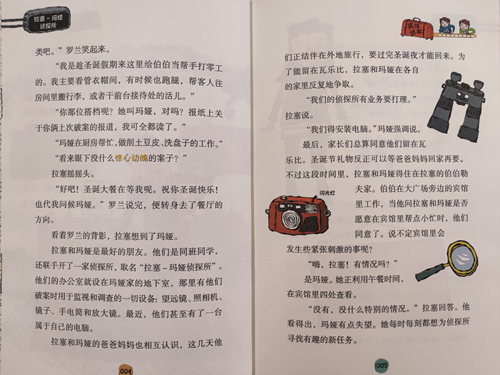 拉塞－玛娅
侦探所
类吧。”罗兰笑起来。
“我是趁圣诞假期来这里给伯伯当帮手打零工
的。我主要看管衣帽间，有时候也跑腿，帮客人往
房间里搬行李，或者干前台接待处的活儿。”
“你那位搭档呢？她叫玛娅，对吗？报纸上关
于你俩上次破案的报道，我可全都读了。”
“玛娅在厨房帮忙，做削土豆皮、洗盘子的工作。”
“看来眼下没什么惊心动魄的案子？”
拉塞摇摇头。
“好吧！圣诞大餐在等我呢。祝你圣诞快乐！
也代我问候玛娅。”罗兰说完，便转身去了餐厅的
方向。
看着罗兰的背影，拉塞想到了玛娅。
拉塞和玛娅是最好的朋友。他们是同班同学，
还联手开了一家侦探所，取名“拉塞－玛娅侦探所”。
他们的办公室就设在玛娅家的地下室，那里有他们
破案时用于监视和调查的一切设备：望远镜、照相机、
镜子、手电筒和放大镜。最近，他们甚至有了一台
属于自己的电脑。
拉塞和玛娅的爸爸妈妈也相互认识，这几天他
004
们正结伴在外地旅行，要过完圣诞夜才能回来。为
了能留在瓦乐比，拉塞和玛娅在各自
的家里反复地争取。
“我们的侦探所有业务要打理。”
拉塞说。
“我们得安装电脑。”玛娅强调说。
最后，家长们总算同意他们留在瓦
乐比。圣诞节礼物反正可以等爸爸妈妈回家再要。
不过这段时间里，拉塞和玛娅得住在拉塞的伯伯勒
闪光灯
夫家。伯伯在大广场旁边的宾馆
里工作，当他问拉塞和玛娅是否
愿意在宾馆里帮点小忙时，他们
同意了。说不定宾馆里会
发生些紧张刺激的事呢？
“嗨，拉塞！有情况吗？”
是玛娅。她正利用午餐时间，
在宾馆里四处查看。
“没有，没什么特别的情况。”拉塞回答。他
看得出，玛娅有点失望。她每时每刻都想为侦探所
寻找有趣的新任务。
005